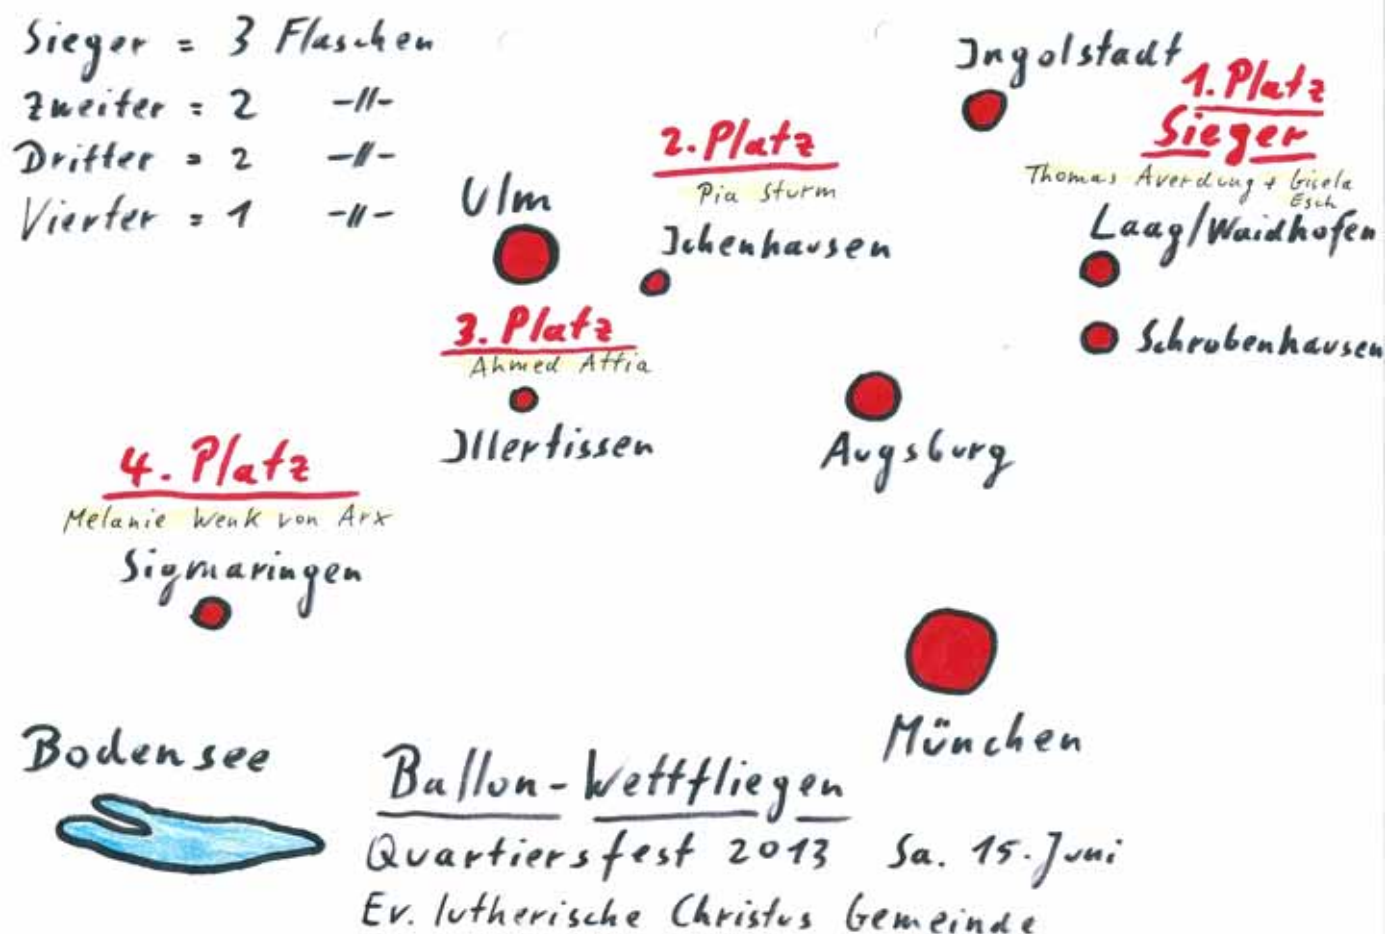 Sieger = 3 Flaschen
Zweiter = 2 -11-
Dritter = 2 -11-
Vierter = 1 -11-
Ingolstadt
1. Platz
Sieger
Thomas Averdung + Gisela
Esch
Laag/Waidhofen
Schrobenhausen
2. Platz
Pia Sturm
Ichenhausen
Ulm
3. Platz
Ahmed Attia
Illertissen
Augsburg
4. Platz
Melanie Wenk von Arx
Sigmaringen
München
Bodensee
Ballon-Wettfliegen
Quartiersfest 2013 Sa. 15. Juni
Ev. lutherische Christus Gemeinde